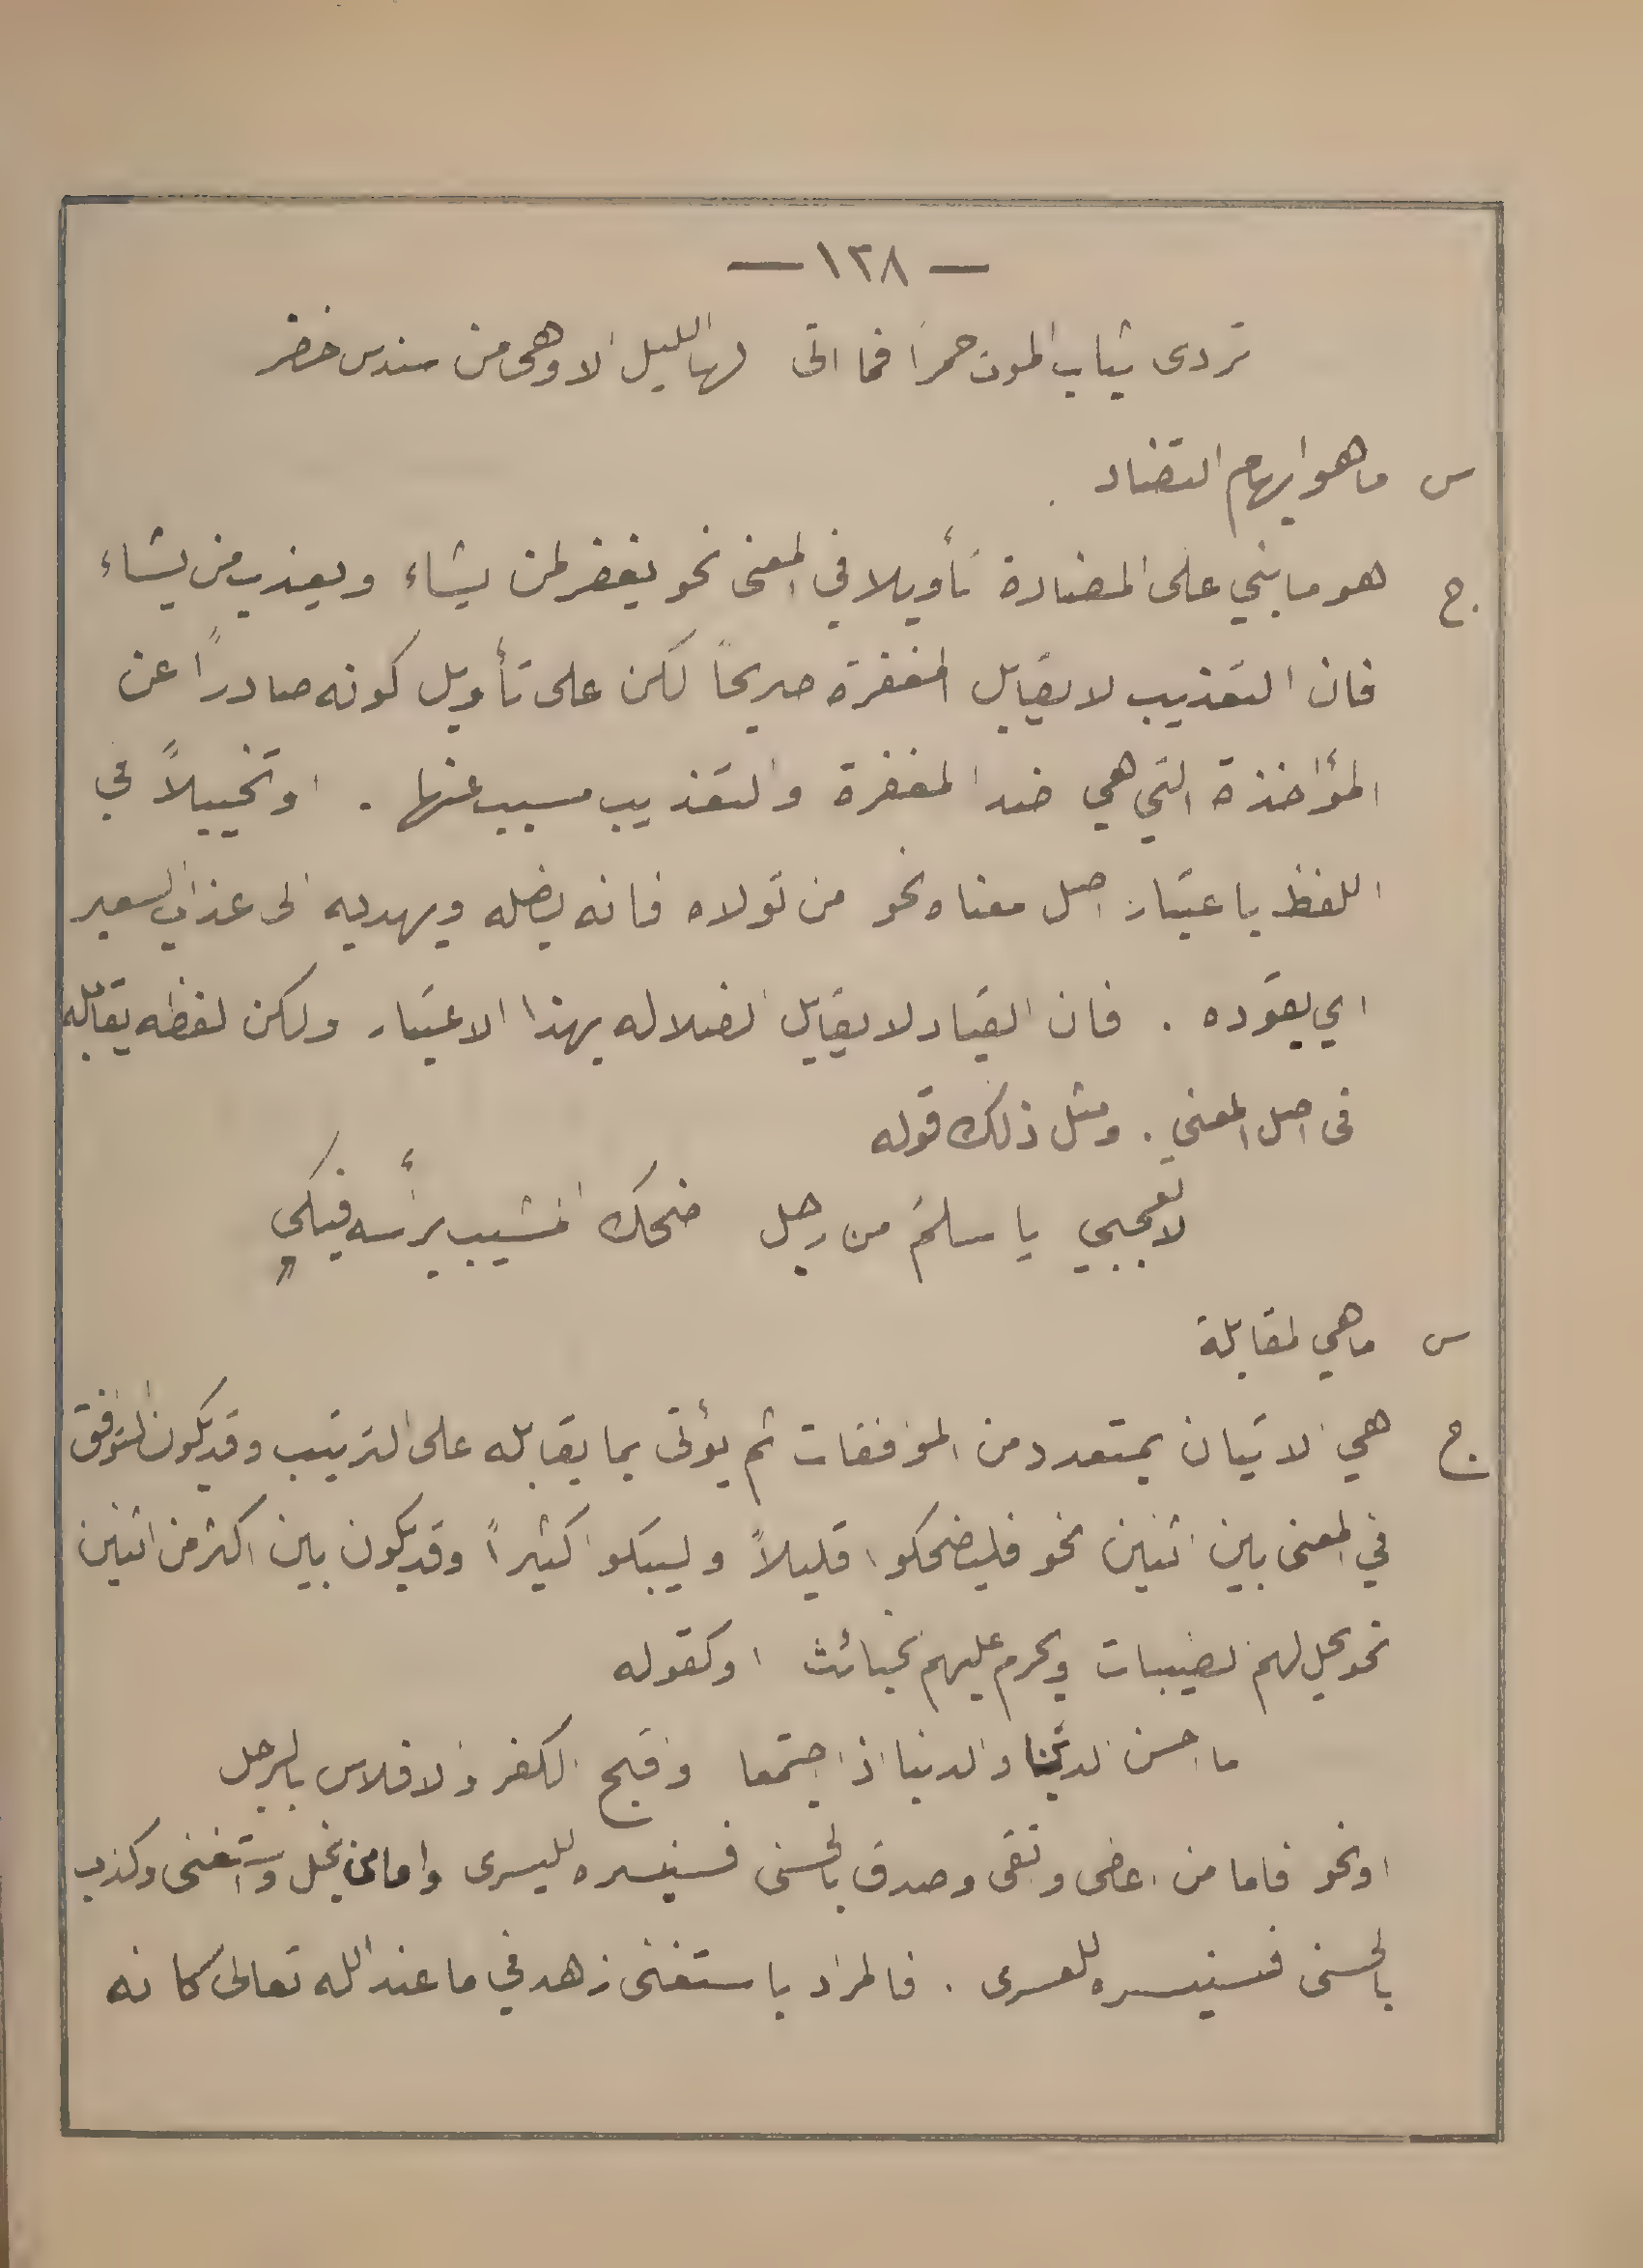 — ١٢٨ —
تردى ثياب الموت حمرًا فما اتى لها الليل الا وهي من سندس خضر
س ما هو ايهام التضاد
ج هو ما بني على المضادة تأويلا في المعنى نحو يغفر لمن يشاء ويعذب من يشاء
فان التعذيب لا يقابل المغفرة صريحًا لكن على تأويل كونه صادرًا عن
المؤاخذة التي هي ضد المغفرة والتعذيب مسبب عنها . او تخييلاً في
اللفظ باعتبار اصل معناه نحو من تولاه فانه يضله ويهديه الى عذاب السعير
اي يقوده . فان القياد لا يقابل الضلاله بهذا الاعتبار ولكن لفظه يقابله
في اصل المعنى . ومثل ذلك قوله
لا تعجبي يا سلمُ من رجل ضحك المشيب برأسه فبكى
س ما هي المقابلة
ج هي الاتيان بمتعدد من الموافقات ثم يؤتى بما يقابله على الترتيب وقد يكون التوافق
في المعنى بين اثنين نحو فليضحكوا قليلاً وليبكوا كثيرًا وقد يكون بين اكثر من اثنين
نحو يحل لهم الطيبات ويحرم عليهم الخبائث او كقوله
ما احسن الدين والدنيا اذا اجتمعا واقبح الكفر والافلاس بالرجل
او نحو فاما من اعطى واتقى وصدق بالحسنى فسنيسره لليسرى واما من بخل واستغنى وكذب
بالحسنى فسنيسره للعسرى . فالمراد باستغنى زهد في ما عند الله تعالى كانه